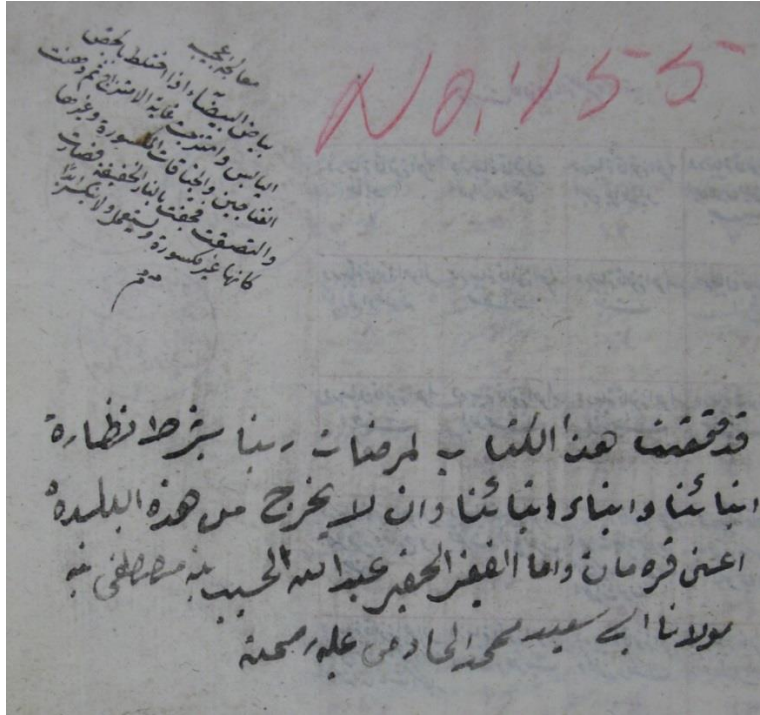 معالجة عجيب
بياض البيضاء اذا اختلط بالجص
اليابس وامتزجت غاية الامتزاج ثم دهنت
الفناجين والجناقات المكسورة وغيرها
والتصقت فجففت بالنار الخفيفة فصارت
كانها غير مكسورة ويستعمل ولا ينكسر ابدا
No. 155
قد وقفت هذا الكتاب لمرضات ربنا بشرط نظارة
ابنائنا وابناء ابنائنا وان لا يخرج من هذه البلدة
اعنى قره مان وانا الفقير الحقير عبد الله الحسيب بن مصطفى بن
مولانا ابى سعيد محمد الخادمى عليه رحمة